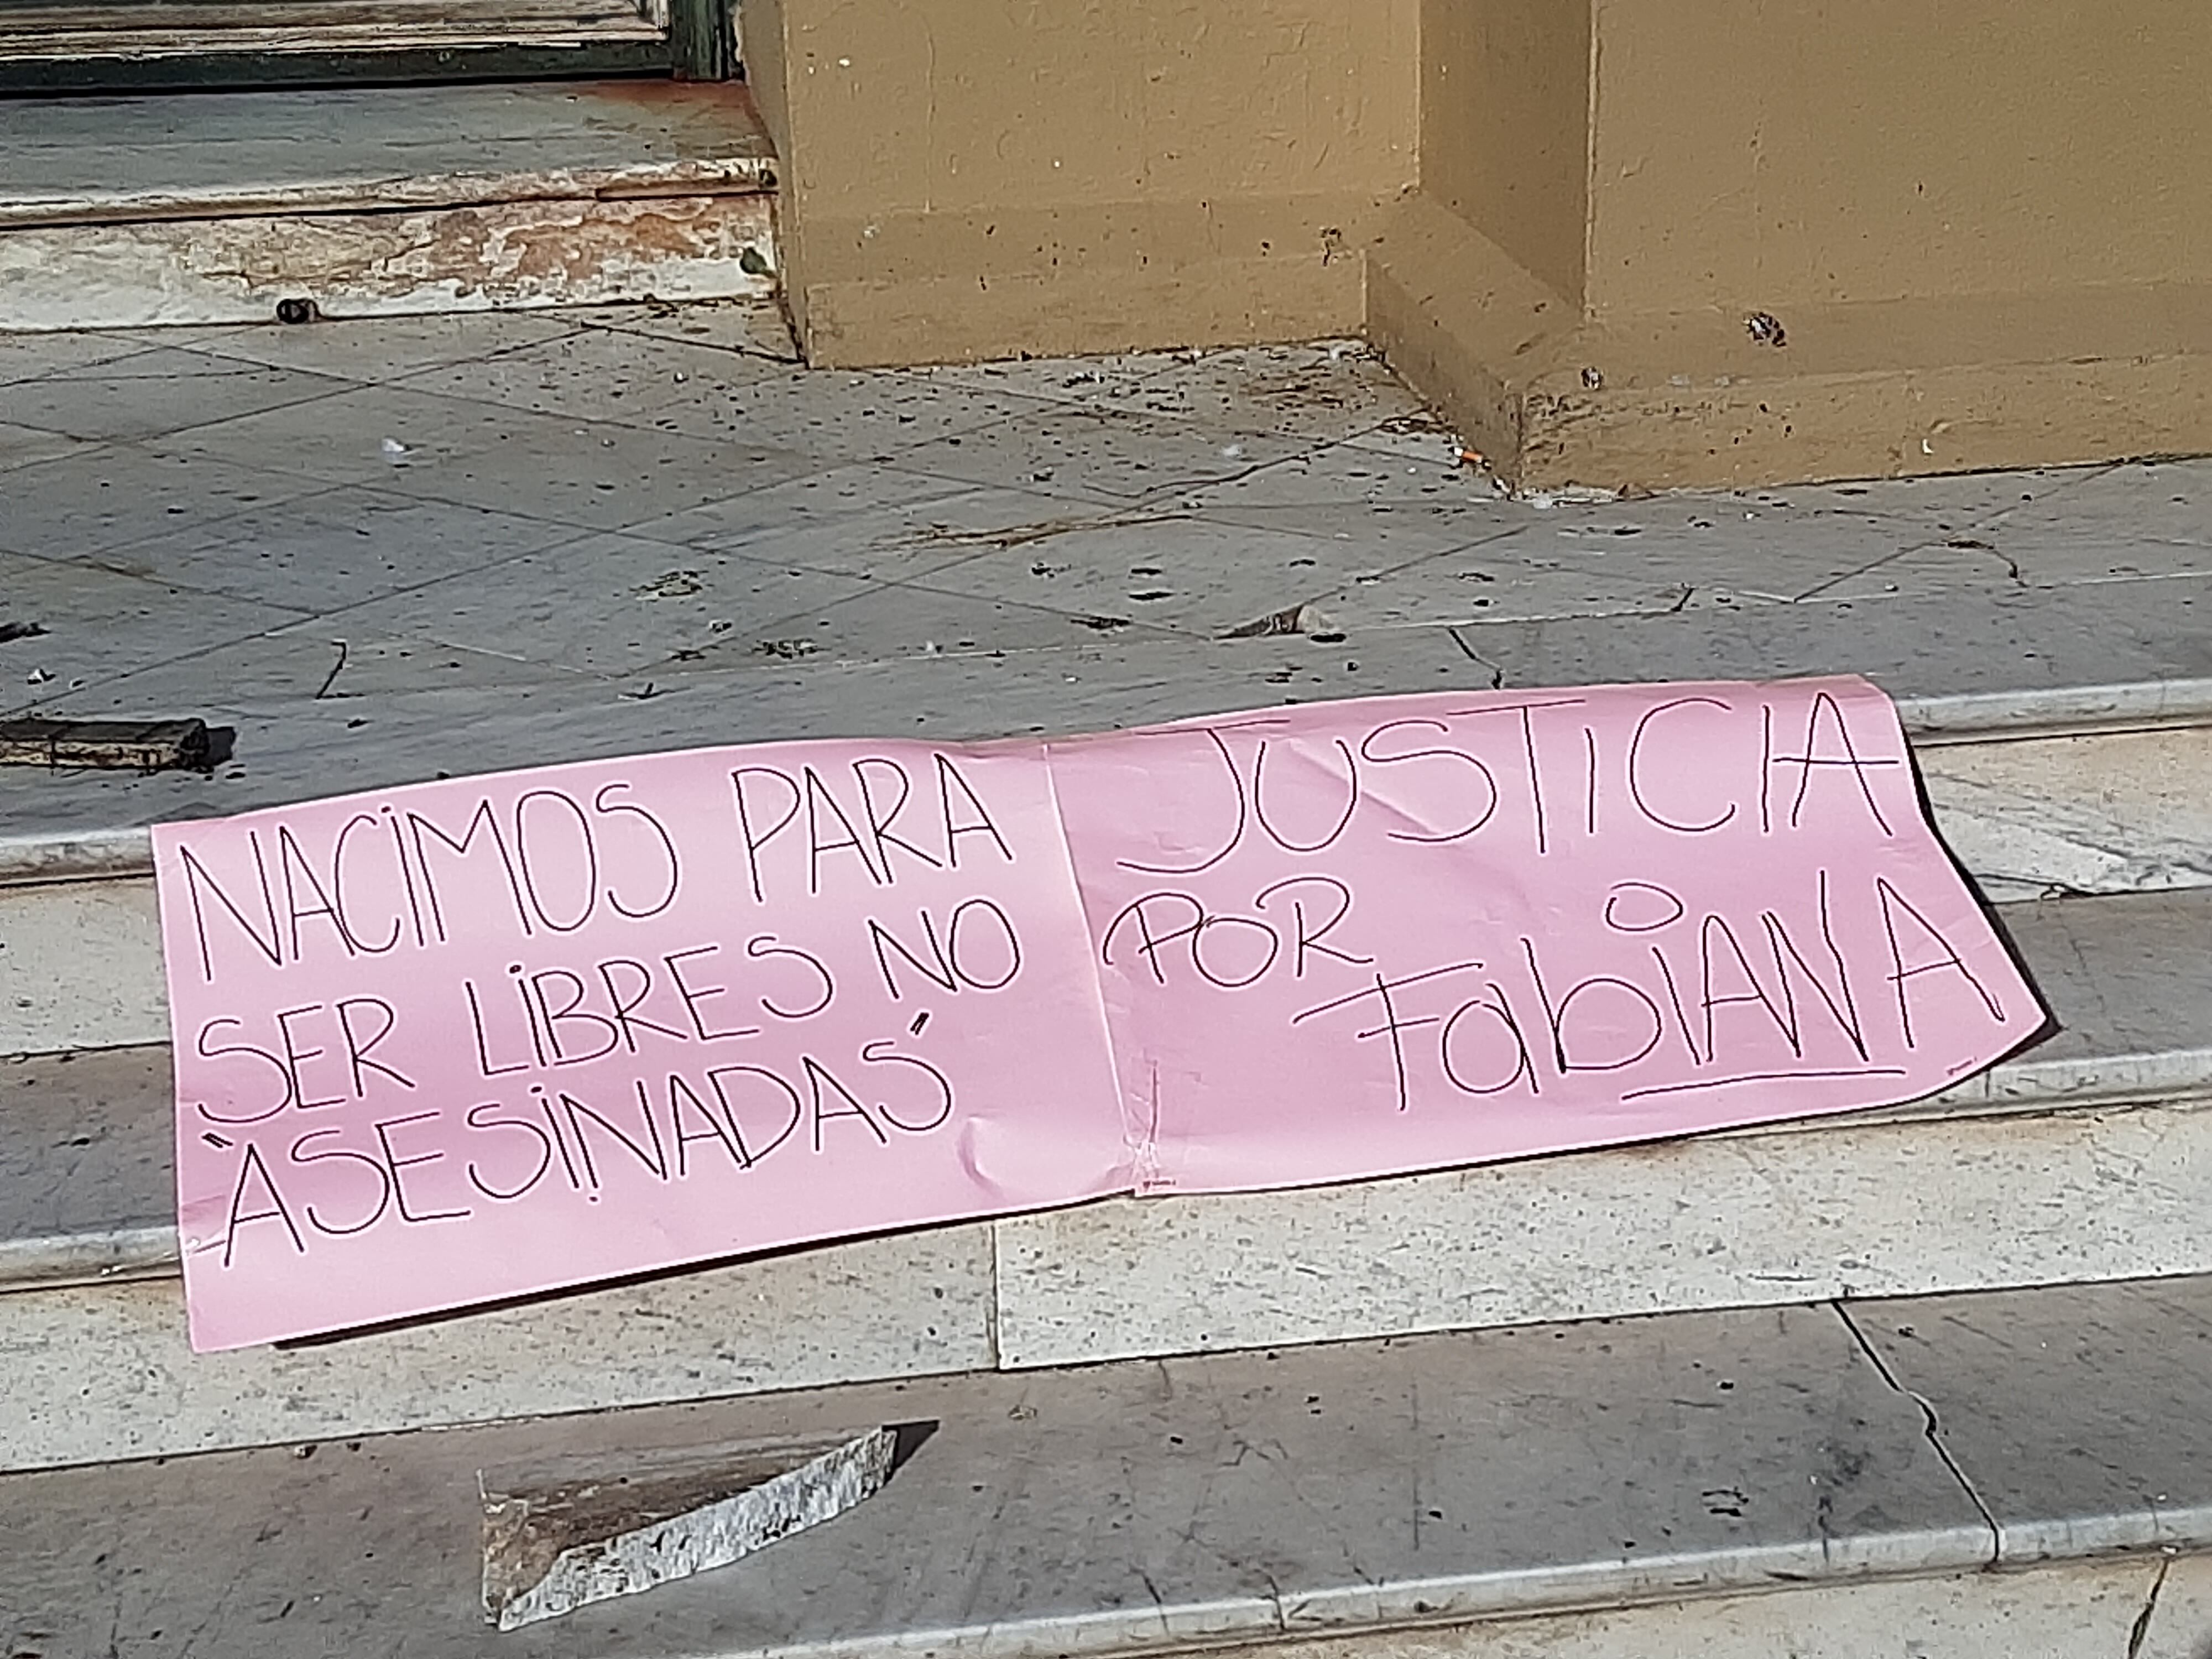 NACIMOS PARA
SER LIBRES NO
"ASESINADAS"
JUSTICIA
POR
FabiANA